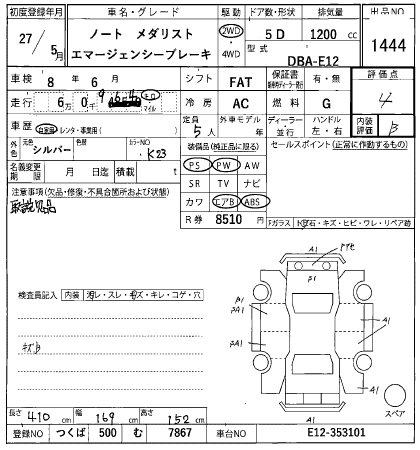 初度登録年月 車名・グレード 駆動 ドア数・形状 排気量 出品NO
27/5月 ノート メダリスト 2WD 5D 1200cc 1444
エマージェンシーブレーキ 4WD 型式 DBA-E12
車検 8年6月 シフト FAT 保証書 有・無 評価点
走行 6万0千 キロ マイル 冷房 AC 燃料 G 4
車歴 自家用 レンタ・事業用( ) 定員 5人 ディーラー 並行 ハンドル 左・右 内装評価 B
外色 シルバー 色替 カラーNO K23 装備品(純正品に限る) セールスポイント(正常に作動するもの)
名義変更期限 月 日迄 積載 t PS PW AW
注意事項(欠品・修復・不具合箇所および状態) SR TV ナビ
取説欠品 カワ エアB ABS
R券 8510円 Fガラス 飛石・キズ・ヒビ・ワレ・リペア跡
A1
B1
検査員記入 内装 汚レ・スレ・キズ・キレ・コゲ・穴
B1 A1
BA1 A1
キズB
BA1 A1
A1
長さ 410cm 幅 169cm 高さ 152cm
A1 スペア
登録NO つくば 500 む 7867 車台NO E12-353101